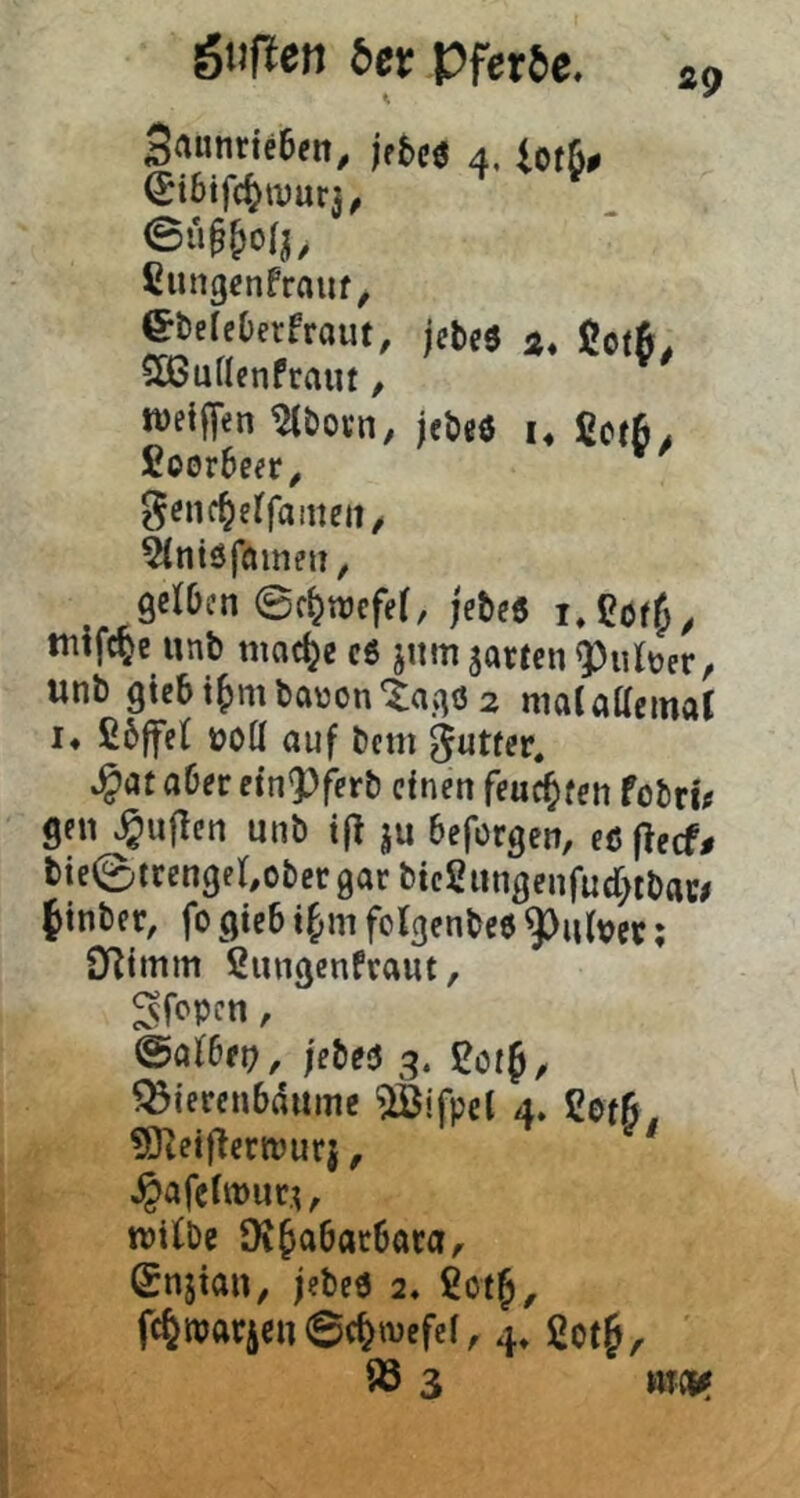 Husten der Pferde. 29
Zaunrieben, jedes 4. Loth,
Eibischwurz,
Süßholz,
Lungenkraut,
Edeleberkraut, jedes 2. Loth,
Wullenkraut,
weissen Adorn, jedes 1. Loth,
Loorbeer,
Fenchelsamen,
Anissamen,
gelben Schwefel, jedes 1. Loth,
mische und mache es zum zarten Pulver,
und gieb ihm davon Tags 2 mal allemal
1. Löffel voll auf dem Futter.
Hat aber ein Pferd einen feuchten kodri-
gen Husten und ist zu besorgen, es steck-
die Strengel, oder gar die Lungensucht dar-
hinder, so gieb ihm folgendes Pulver:
Nimm Lungenkraut,
Isopen,
Salbey, jedes 3. Loth,
Bierenbäume Wispel 4. Loth,
Meisterwurz,
Haselwurz,
wilde Rhabarbara,
Enzian, jedes 2. Loth,
schwarzen Schwefel, 4. Loth,
B 3 ma-